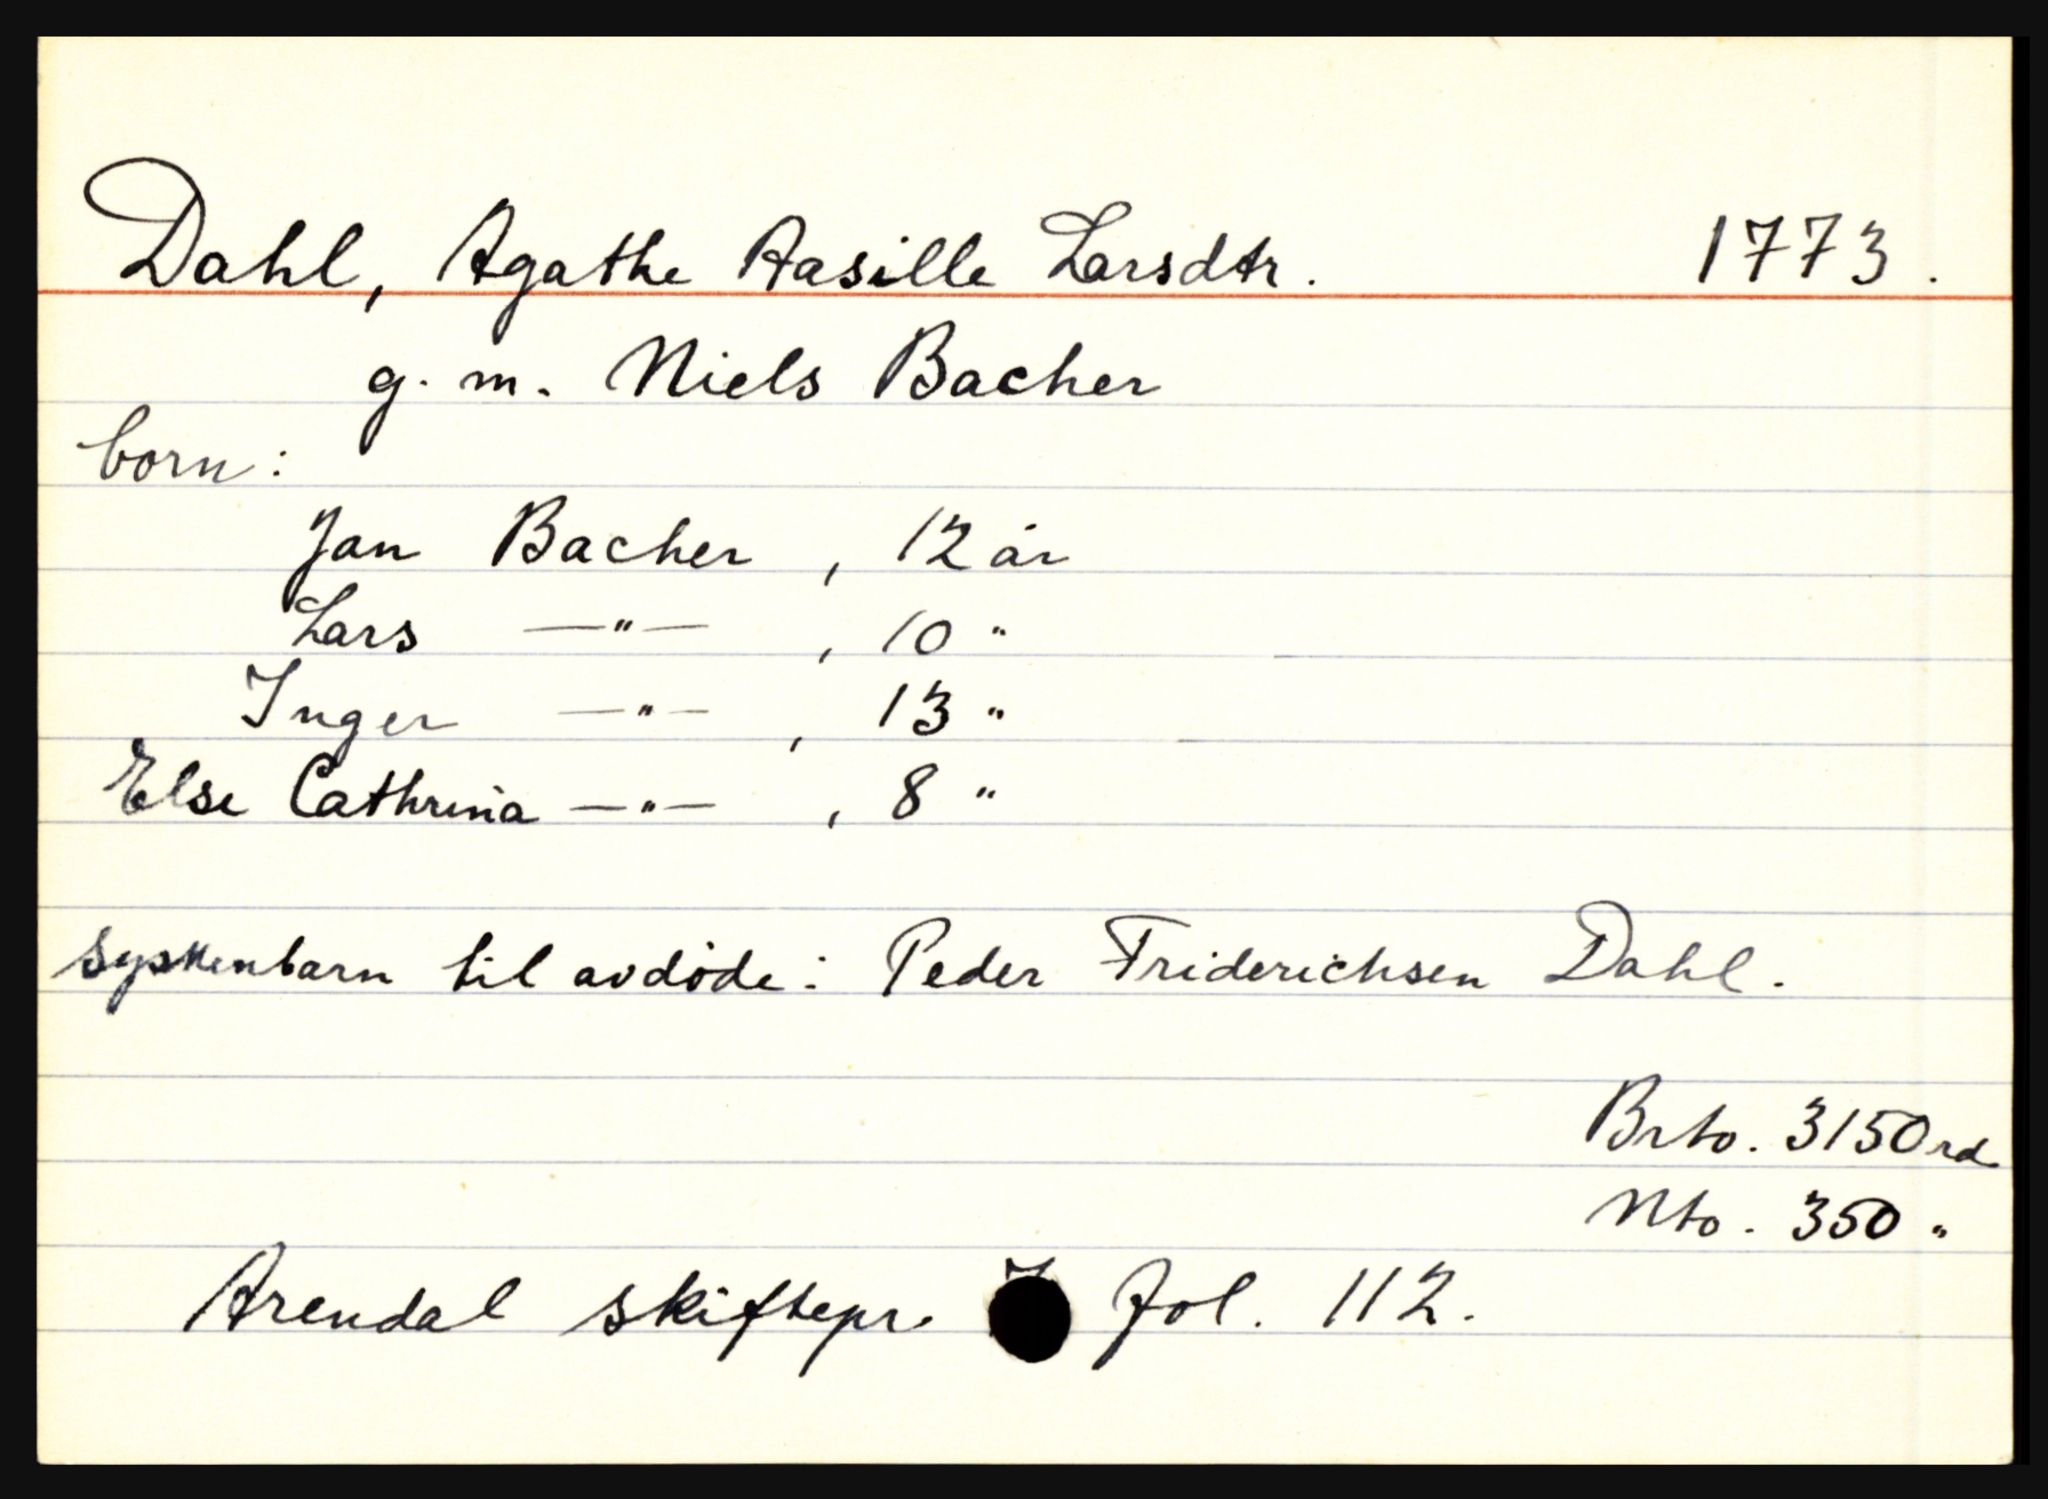 Dahl, Agathe Aasille Larsdtr. 1773.
g. m. Niels Bacher
born:
Jan Bacher, 12 år
Lars —"—, 10 "
Inger —"—, 13 "
Else Cathrina —"—, 8 "
syskenbarn til avdøde: Peder Friderichsen Dahl.
Brto. 3150 rd
Nto. 350 "
Arendal skiftepr. fol. 112.